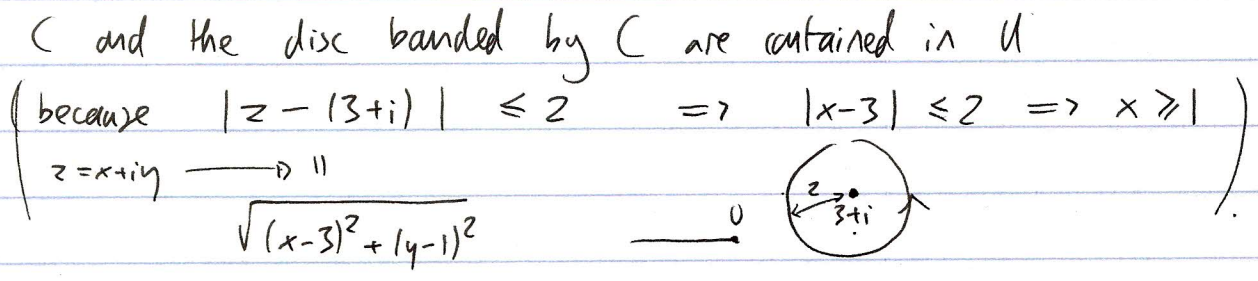 C and the disc bounded by C are contained in U
(because |z-(3+i)| ≤ 2 => |x-3| ≤ 2 => x ≥ 1)
z=x+iy → ||
√((x-3)²+(y-1)²)
0 2 3+i